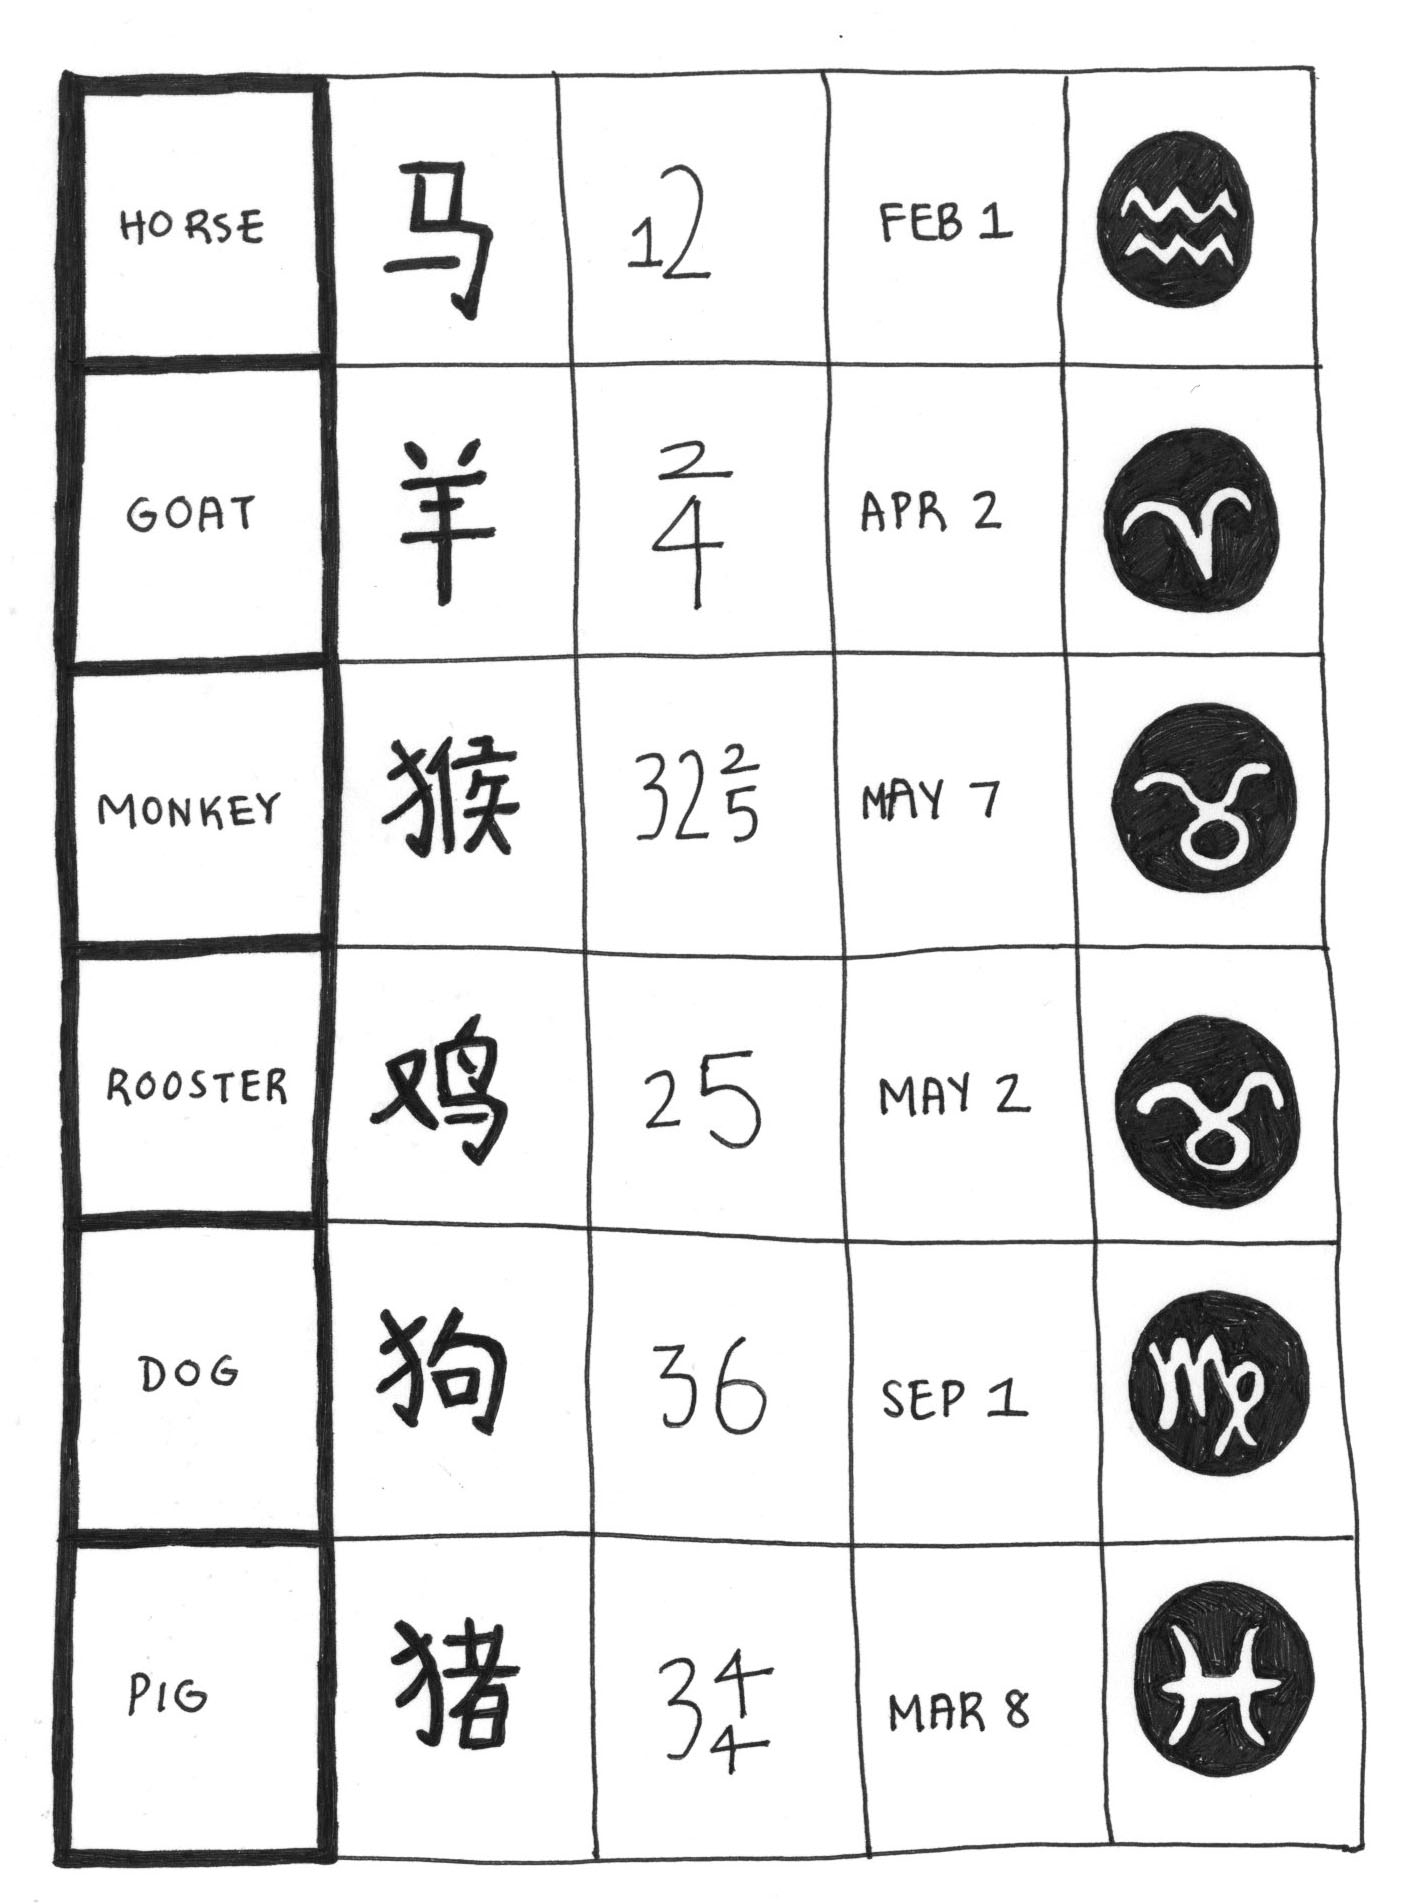 HORSE 马 12 FEB 1 ♒
GOAT 羊 2/4 APR 2 ♈
MONKEY 猴 32 2/5 MAY 7 ♉
ROOSTER 鸡 25 MAY 2 ♉
DOG 狗 36 SEP 1 ♍
PIG 猪 3 4/4 MAR 8 ♓